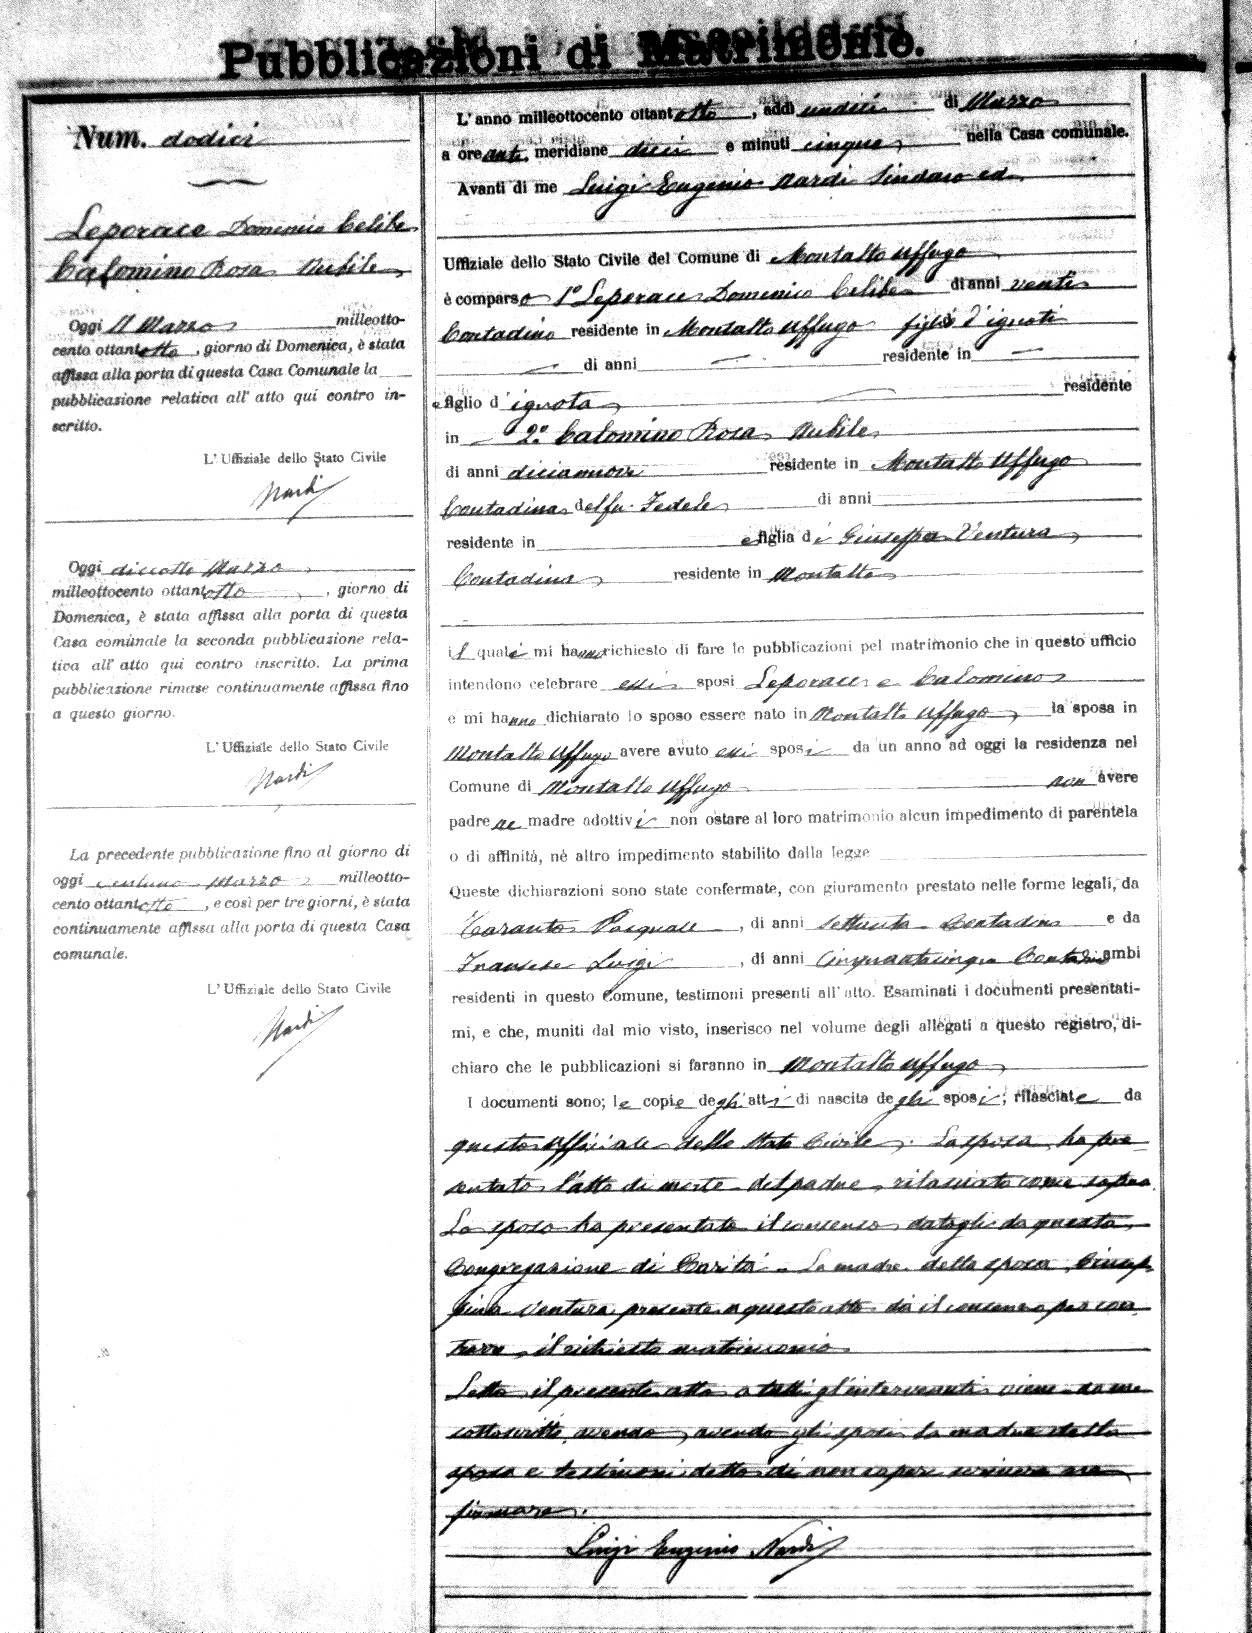 Pubblicazioni di Matrimonio.
Num. dodici
Leporace Domenico Celibe
Calomino Rosa Nubile
Oggi 11 Marzo milleotto-
cento ottantotto, giorno di Domenica, è stata
affissa alla porta di questa Casa Comunale la
pubblicazione relativa all' atto qui contro in-
scritto.
L' Uffiziale dello Stato Civile
Nardi
Oggi diciotto Marzo
milleottocento ottantotto, giorno di
Domenica, è stata affissa alla porta di questa
Casa comunale la seconda pubblicazione rela-
tiva all' atto qui contro inscritto. La prima
pubblicazione rimase continuamente affissa fino
a questo giorno.
L' Uffiziale dello Stato Civile
Nardi
La precedente pubblicazione fino al giorno di
oggi ventuno Marzo milleotto-
cento ottantotto, e così per tre giorni, è stata
continuamente affissa alla porta di questa Casa
comunale.
L' Uffiziale dello Stato Civile
Nardi
L' anno milleottocento ottantotto, addì undici di Marzo
a ore anti meridiane dieci e minuti cinque, nella Casa comunale.
Avanti di me Luigi Eugenio Nardi Sindaco ed
Uffiziale dello Stato Civile del Comune di Montalto Uffugo
è comparso 1° Leporace Domenico Celibe di anni venti
Contadino residente in Montalto Uffugo figlio d'ignoti
di anni residente in
e figlio d' ignota residente
in 2° Calomino Rosa Nubile
di anni diciannove residente in Montalto Uffugo
Contadina del fu Fedele di anni
residente in e figlia di Giuseppa Ventura
Contadina residente in Montalto
i quali mi hanno richiesto di fare le pubblicazioni pel matrimonio che in questo ufficio
intendono celebrare essi sposi Leporace e Calomino
e mi hanno dichiarato lo sposo essere nato in Montalto Uffugo, la sposa in
Montalto Uffugo avere avuto essi sposi da un anno ad oggi la residenza nel
Comune di Montalto Uffugo non avere
padre ne madre adottivi non ostare al loro matrimonio alcun impedimento di parentela
o di affinità, nè altro impedimento stabilito dalla legge
Queste dichiarazioni sono state confermate, con giuramento prestato nelle forme legali, da
Taranto Pasquale, di anni settanta Contadino e da
Francese Luigi, di anni cinquantacinque Contadino ambi
residenti in questo Comune, testimoni presenti all' atto. Esaminati i documenti presentati-
mi, e che, muniti dal mio visto, inserisco nel volume degli allegati a questo registro, di-
chiaro che le pubblicazioni si faranno in Montalto Uffugo
I documenti sono; le copie degli atti di nascita degli sposi; rilasciate da
questo Officiale dello Stato Civile. La sposa ha pre-
sentato l'atto di morte del padre, rilasciato come sopra.
Lo sposo ha presentato il consenso datagli da questa
Congregazione di Carità. La madre della sposa Giusep-
pina Ventura presente a questo atto dà il consenso per con
trarre il richiesto matrimonio
Letto il presente atto a tutti gl'intervenuti viene da me
sottoscritto, avendo, avendo gli sposi la madre della
sposa e testimoni detto di non sapere scrivere ne
firmare.
Luigi Eugenio Nardi